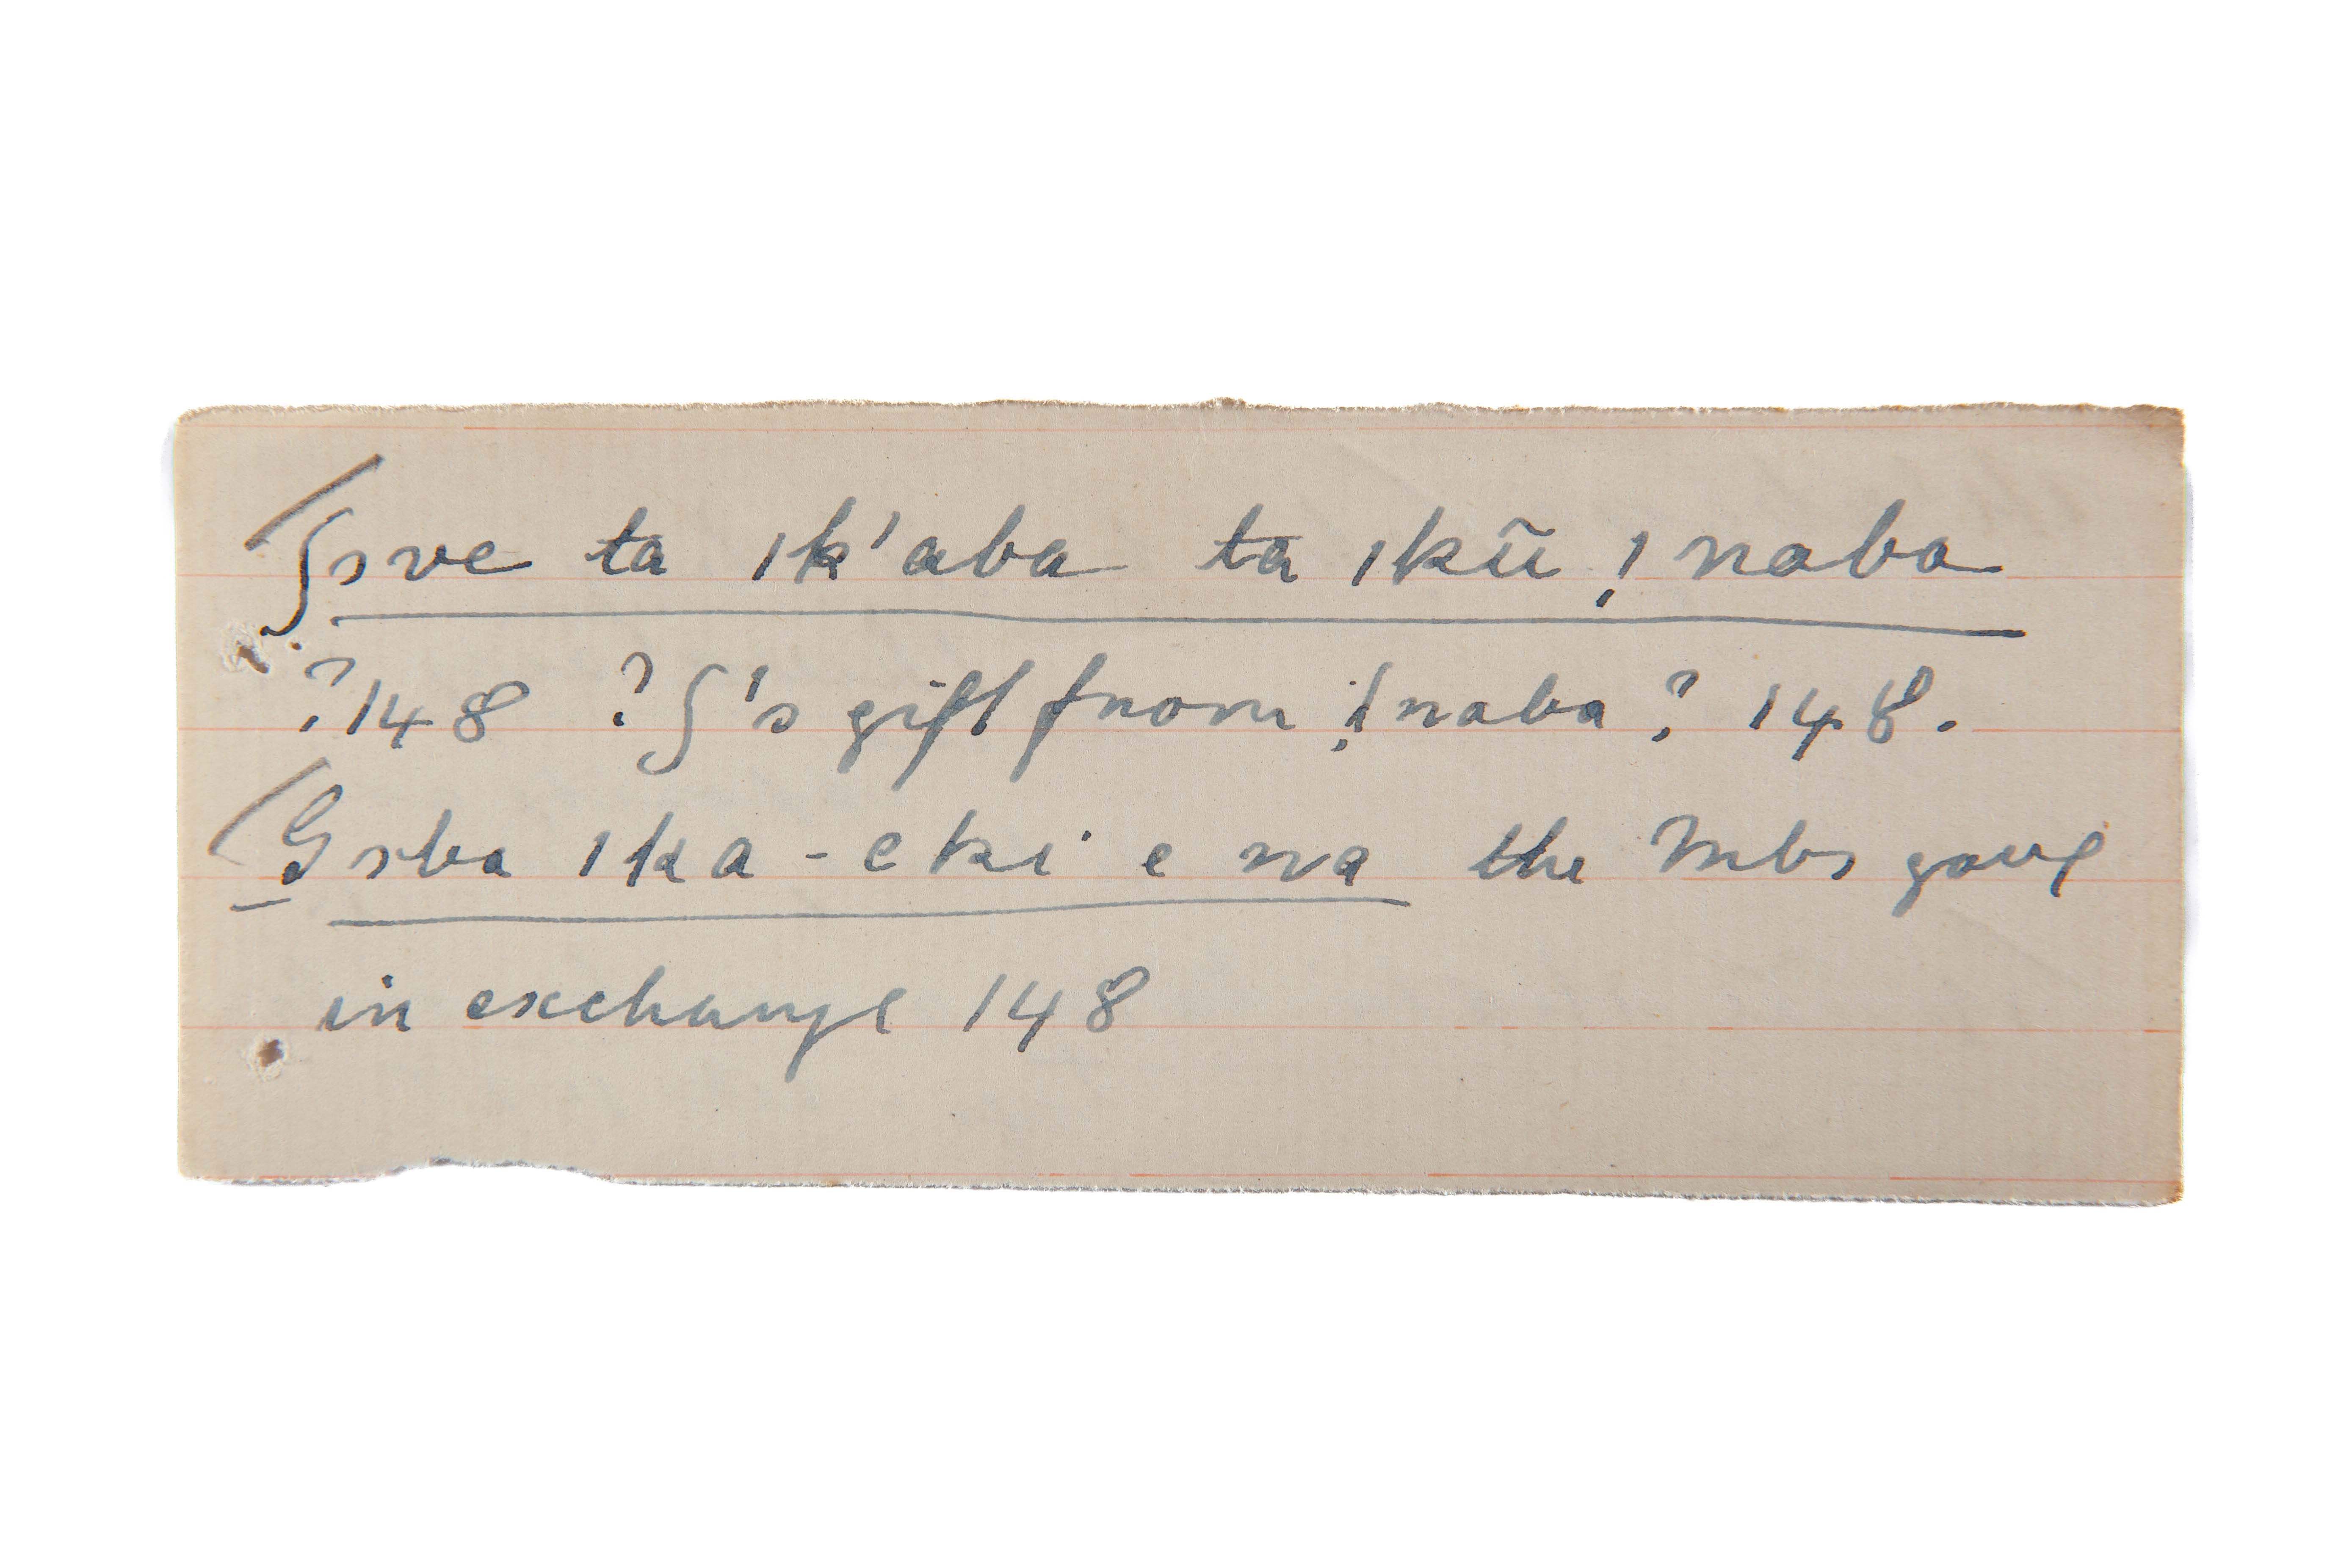 ʃsve ta ık'aba ta ıkũ !̣naba
?148 ?ʃ's gift from !̣naba? 148.
Gsba ıka-eki e na the Mbs gave
in exchange 148